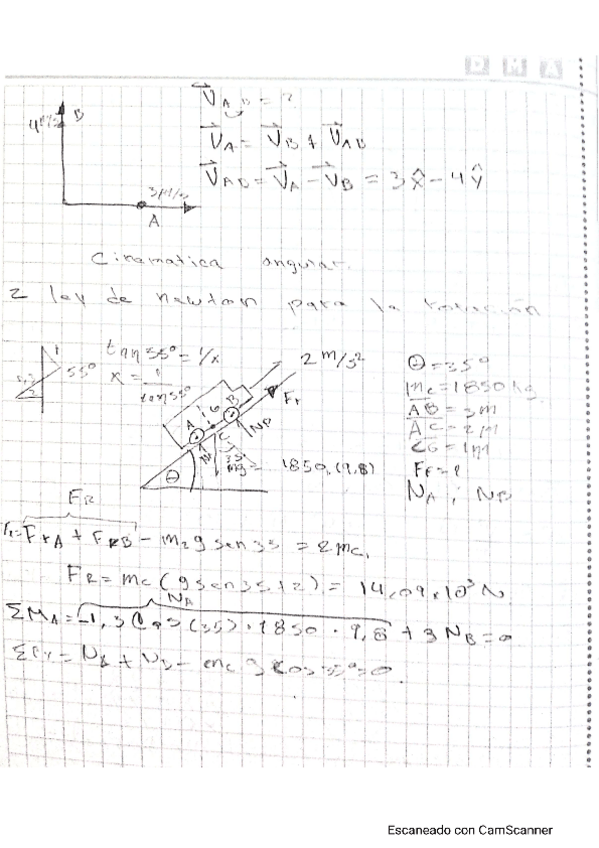 D M A
B
4m/s
3m/s
A
V⃗AB = ?
V⃗A = V⃗B + V⃗AB
V⃗AB = V⃗A − V⃗B = 3x̂ − 4ŷ
Cinematica angular.
2 ley de newton para la rotación
1
55°
tan 55° = 1/x
x = 1/tan 55°
2 m/s²
Fr
A
B
G
C
NB
35
mg = 1850.(9,8)
θ
θ = 35°
mc = 1850 kg
AB = 3m
AC = 2m
CG = 1m
Fr = ?
NA ; NB
FR
FrA + FRB − mcg sen 35 = 2mc,
FR = mc (g sen 35 + 2) = 14,09x10³ N
NA
ΣMA = −1,3 Cos (35) · 1850 · 9,8 + 3 NB = 0
ΣFy = NA + NB − mc g cos 35° = 0.
Escaneado con CamScanner